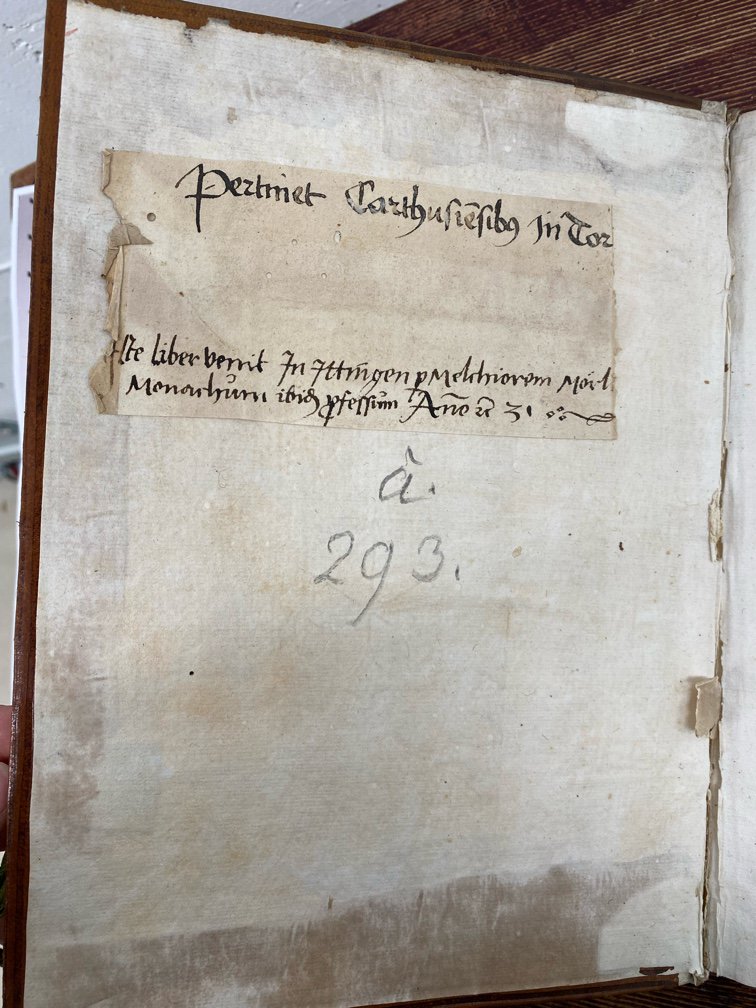 Pertinet Carthusiēsibꝰ In Tor
Iste liber venit In Ittingen ꝑ Melchiorem Mörl
Monachum ibidē ꝓfessum Año ꝛc 31
a.
293.